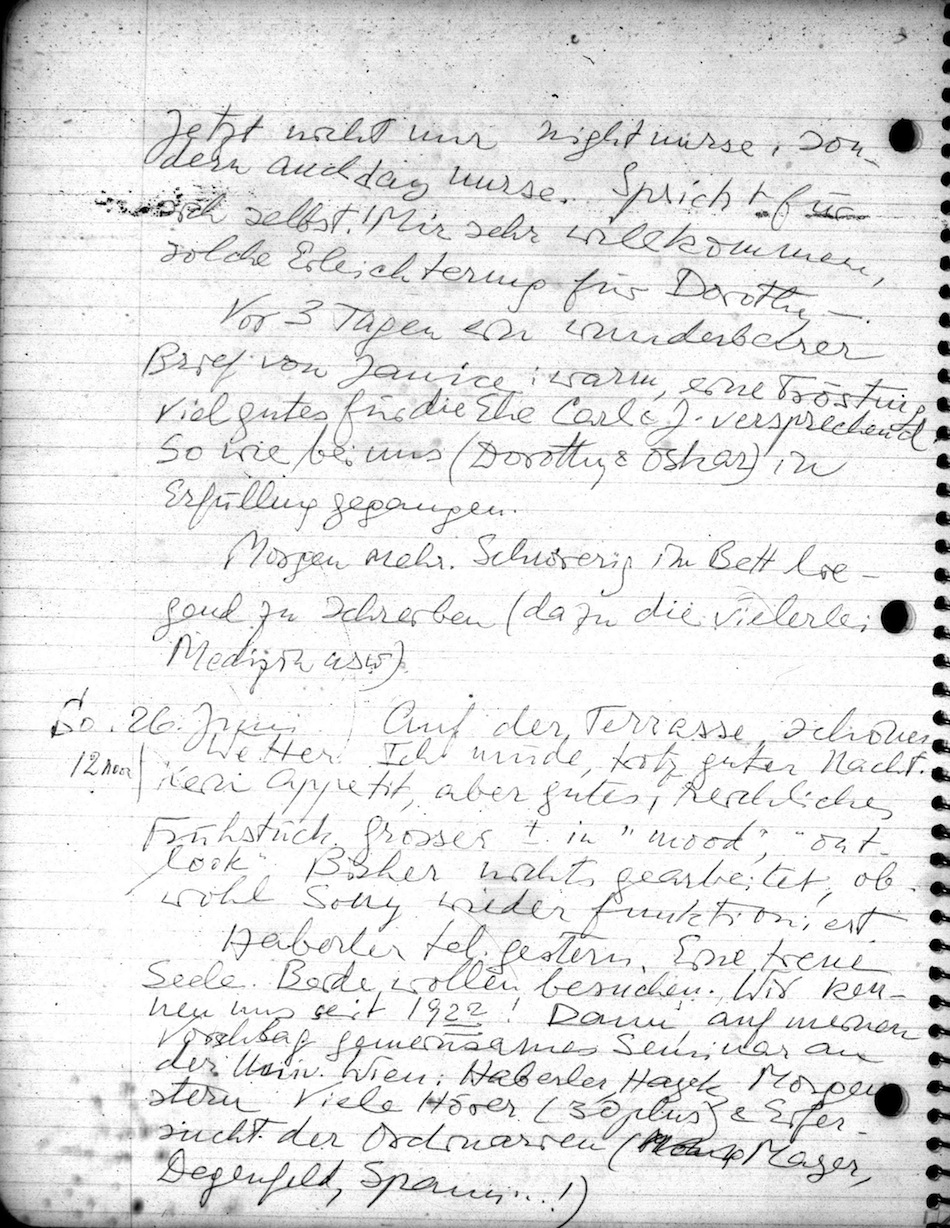 Jetzt nicht nur nightnurse, son-
dern auch day nurse. Spricht für
sich selbst! Mir sehr willkommen,
solche Erleichterung für Dorothy —.
Vor 3 Tagen ein wunderbarer
Brief von Janice: warm, eine Tröstung,
viel gutes für die Ehe Carl & J. versprechend
So wie bei uns (Dorothy & Oskar) in
Erfüllung gegangen.
Morgen mehr. Schwierig im Bett lie-
gend zu schreiben (dazu die vielerlei
Medizin usw).
So. 26. Juni) Auf der Terrasse, schönes
12 noon Wetter. Ich müde, trotz guter Nacht.
Kein Appetit, aber gutes, reichliches
Frühstück. Grosser ± in "mood", "out-
look". Bisher nichts gearbeitet, ob-
wohl Sony wieder funktioniert
Haberler tel. gestern. Eine treue
Seele. Beide wollen besuchen. Wir ken-
nen uns seit 1922! Dann auf meinen
Vorschlag gemeinsames Seminar an
der Univ. Wien: Haberler, Hayek, Morgen
stern. Viele Hörer (30 plus) & Eifer-
sucht der Ordinarien (Mayer,
Degenfeld, Spann...!)